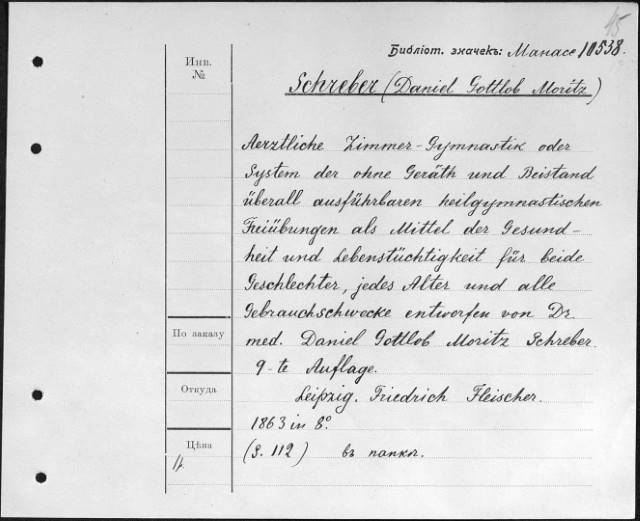 45
Библіот. значекъ: Манасе 10538.
Инв.
№
Schreber (Daniel Gottlob Moritz)
Aerztliche Zimmer-Gymnastik oder
System der ohne Geräth und Beistand
überall ausführbaren heilgymnastischen
Freiübungen als Mittel der Gesund-
heit und Lebenstüchtigkeit für beide
Geschlechter, jedes Alter und alle
Gebrauchschwecke entworfen von Dr.
По заказу
med. Daniel Gottlob Moritz Schreber.
9-te Auflage.
Откуда
Leipzig. Friedrich Fleischer.
1863 in 8º.
Цѣна
(S. 112) въ папкѣ.